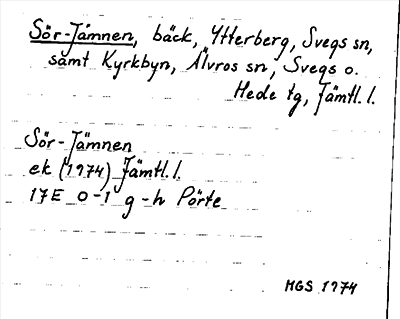 Sör-Jämnen, bäck, Ytterberg, Svegs sn,
samt Kyrkbyn, Älvros sn, Svegs o.
Hede tg, Jämtl. l.
Sör-Jämnen
ek (1974) Jämtl. l.
17E 0-1 g-h Pörte
MGS 1974